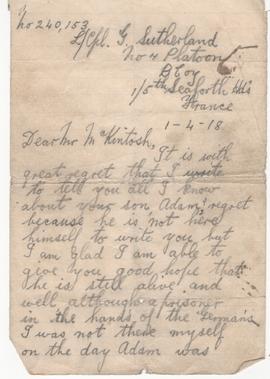 No 240,153
L/Cpl. G. Sutherland
No 4 Platoon
B Coy
1/5th Seaforth Hdrs
France
1-4-18
Dear Mr McKintosh,
It is with
great regret that I write
to tell you all I know
about your son Adam, regret
because he is not here
himself to write you but
I am glad I am able to
give you good hope that
he is still alive and
well although a prisoner
in the hands of the Germans
I was not there myself
on the day Adam was